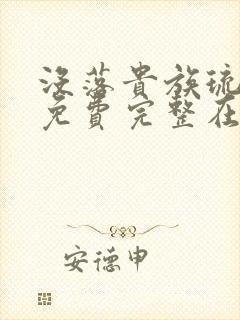 没落貴族琉
免費完整在
安德申